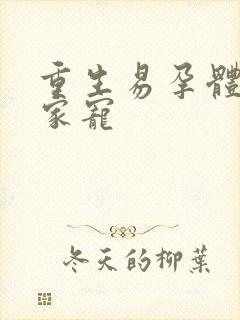 重生易孕體
家寵
冬天的柳葉